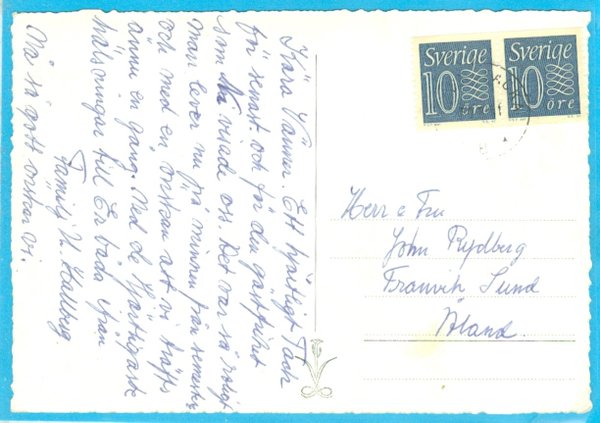 Kära Vänner. Ett hjärtligt Tack
för senast. och för den gästfrihet
som Ni visade oss. Det var så roligt
man lever nu på minnen från semestern
och med en önskan att vi träffs
ännu en gång. Med de hjärtligaste
hälsningar till Er båda från
Familj H. Hallberg
Må så gott önskar vi.
Sverige
10
öre
Sverige
10
öre
Herr o Fru
John Rydberg
Franvik Sund
Åland.